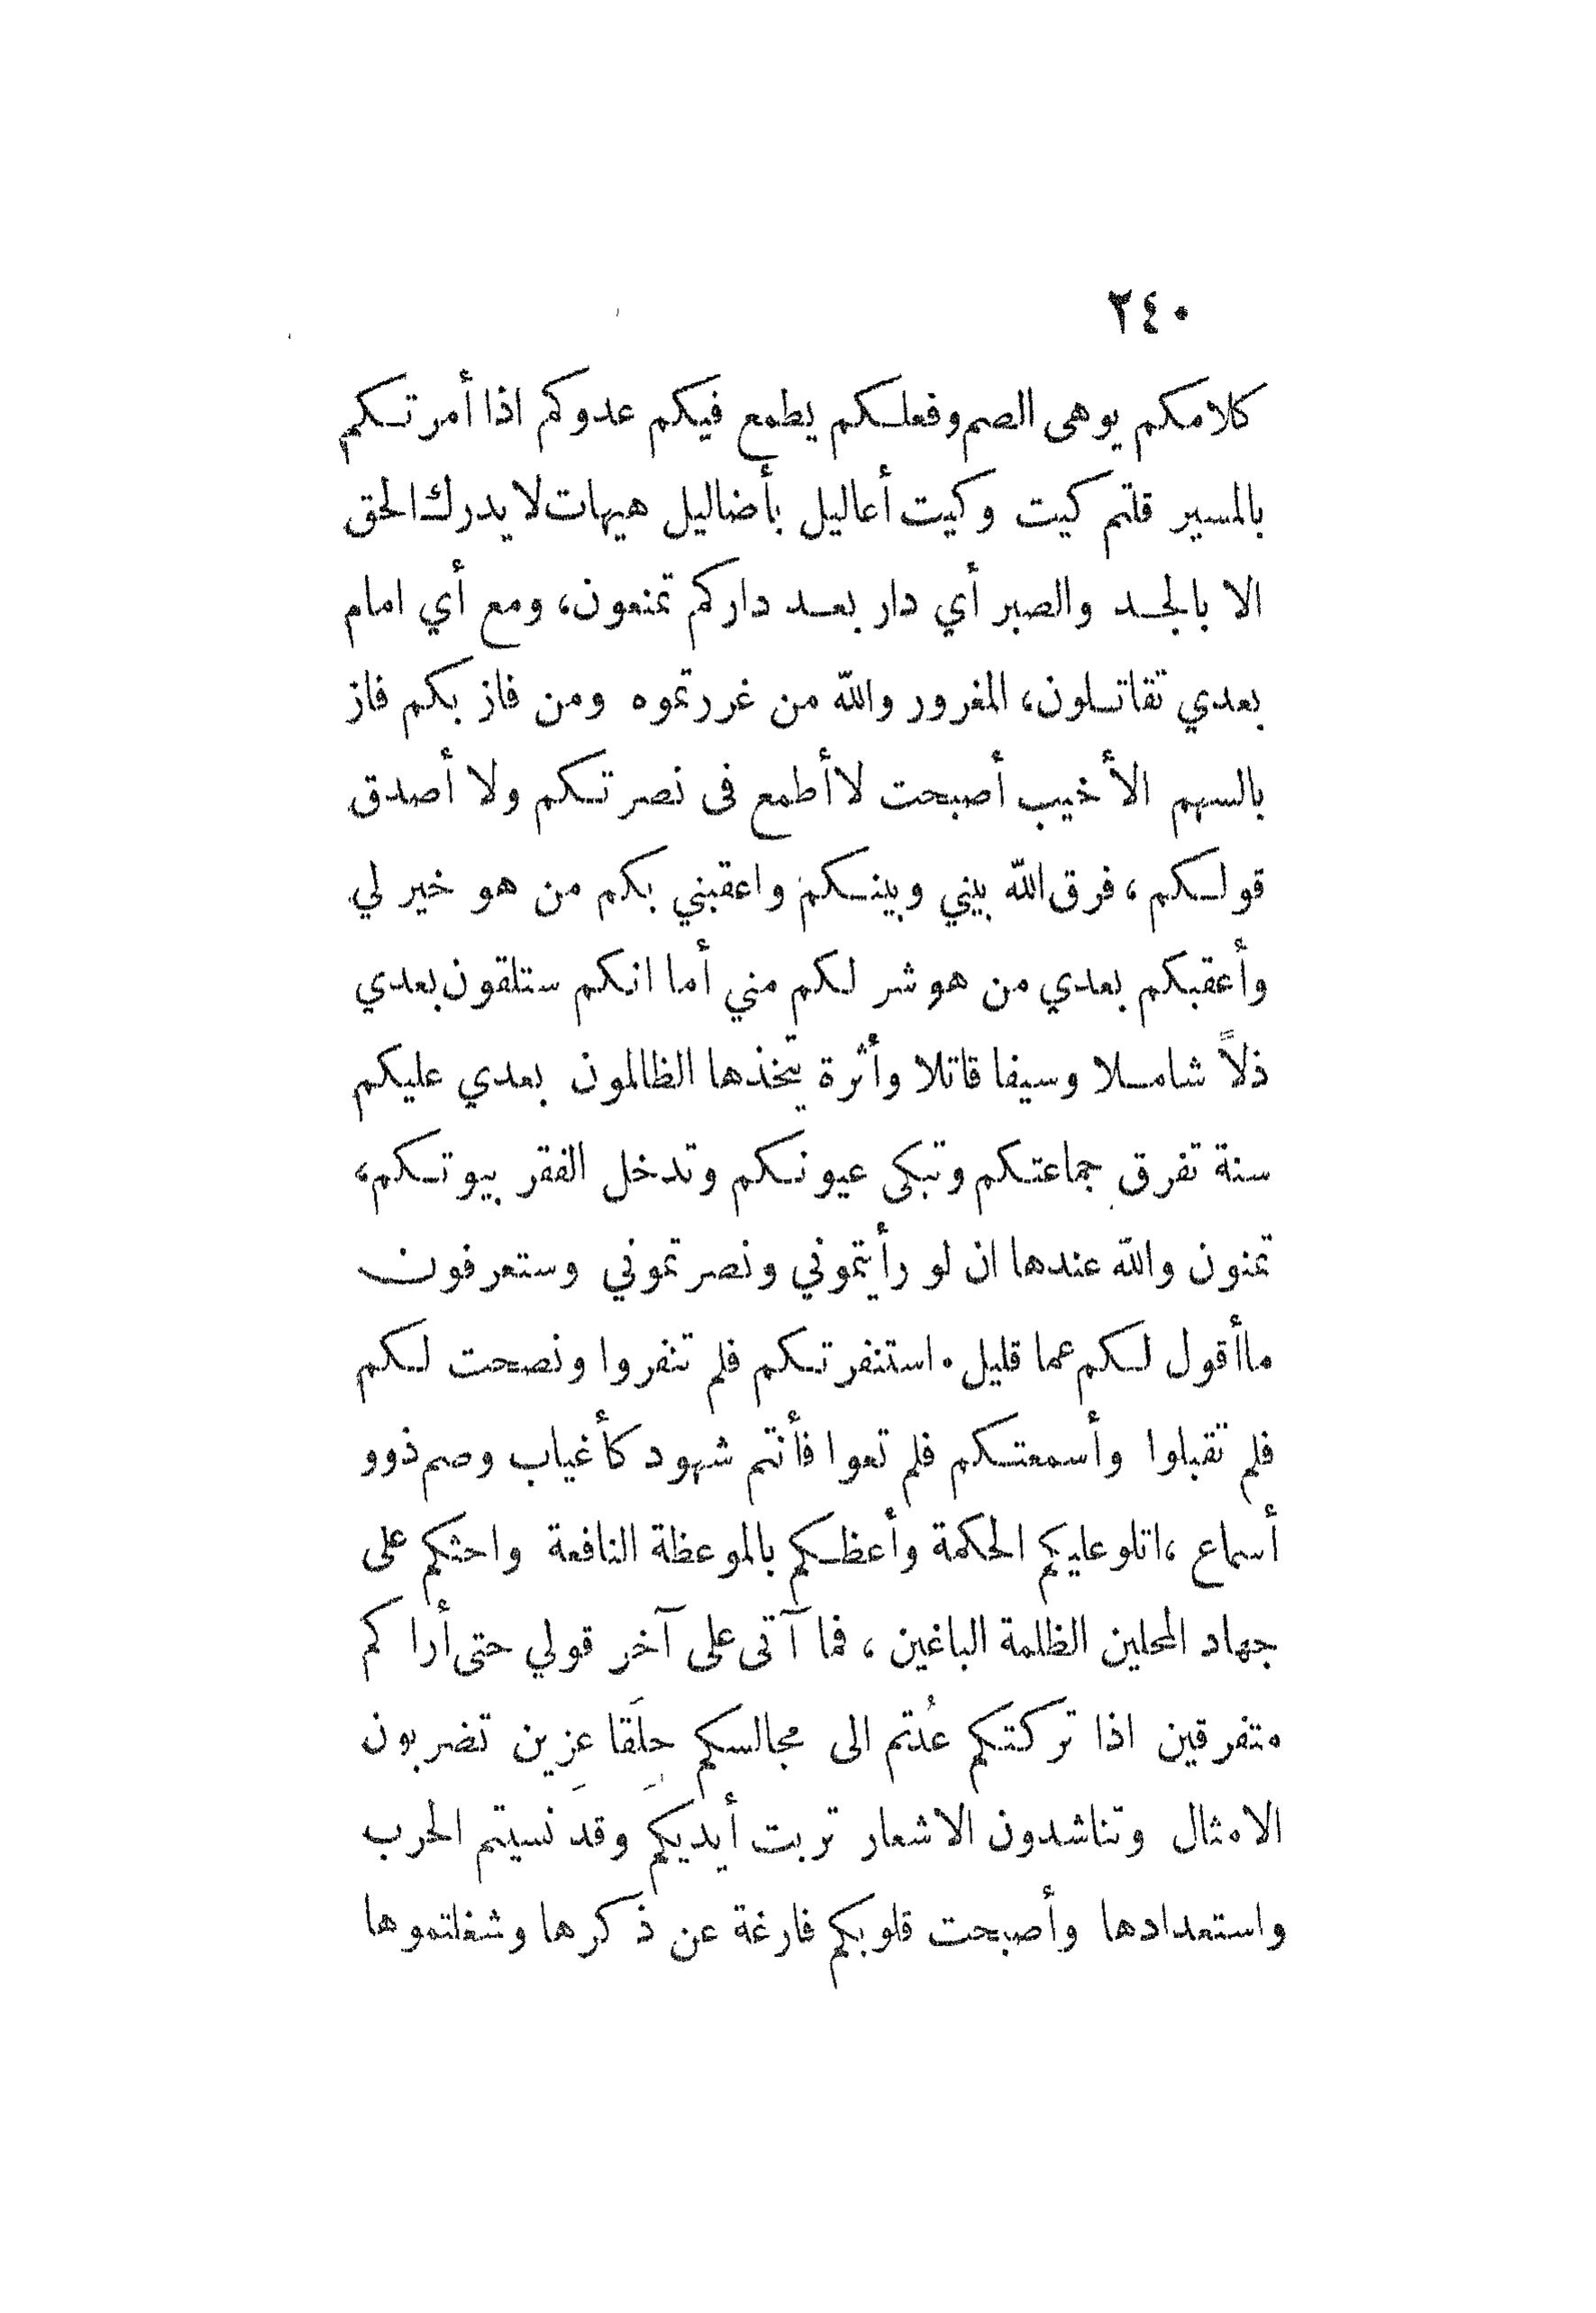 ٢٤٠
كلامكم يوهى الصم وفعلكم يطمع فيكم عدوكم اذا أمرتكم
بالمسير قلتم كيت وكيت أعاليل بأضاليل هيهات لا يدرك الحق
الا بالجد والصبر أي دار بعد داركم تمنعون، ومع أي امام
بعدي تقاتلون، المغرور والله من غررتموه ومن فاز بكم فاز
بالسهم الأخيب أصبحت لا أطمع فى نصرتكم ولا أصدق
قولكم، فرق الله بيني وبينكم واعقبني بكم من هو خير لي
وأعقبكم بعدي من هو شر لكم مني أما انكم ستلقون بعدي
ذلاً شاملا وسيفا قاتلا وأثرة يتخذها الظالمون بعدي عليكم
سنة تفرق جماعتكم وتبكى عيونكم وتدخل الفقر بيوتكم،
تمنون والله عندها ان لو رأيتموني ونصرتموني وستعرفون
ما أقول لكم عما قليل. استنفرتكم فلم تنفروا ونصحت لكم
فلم تقبلوا وأسمعتكم فلم تعوا فأنتم شهود كأغياب وصم ذوو
أسماع، اتلو عليكم الحكمة وأعظكم بالموعظة النافعة واحثكم على
جهاد المحلين الظلمة الباغين، فما آتى على آخر قولي حتى أراكم
متفرقين اذا تركتكم عُدتم الى مجالسكم حِلَقا عِزِين تضربون
الامثال وتناشدون الاشعار تربت أيديكم وقد نسيتم الحرب
واستعدادها وأصبحت قلوبكم فارغة عن ذكرها وشغلتموها